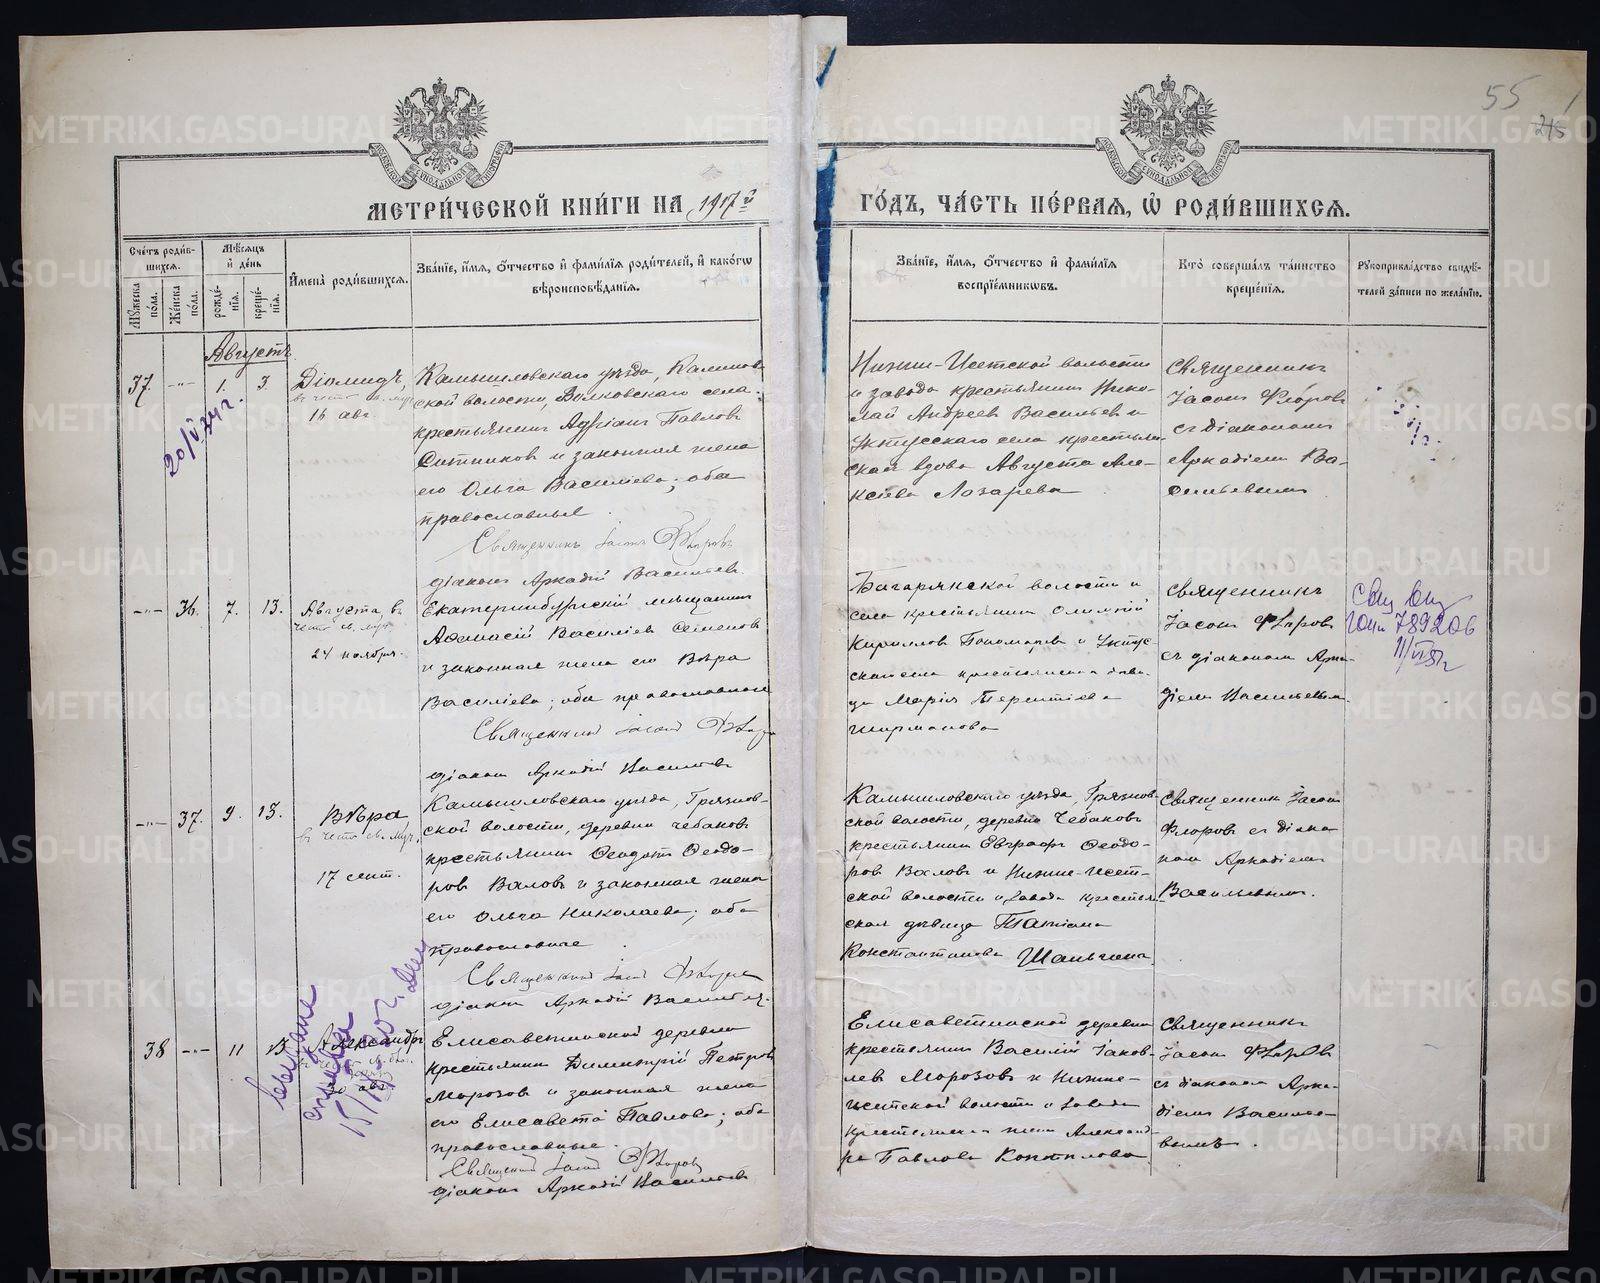 55
215
МЕТРИ́ЧЕСКОЙ КНИ́ГИ НА 1917й
ГО́ДЪ, ЧА́СТЬ ПЕ́РВАЯ, Ѡ҆ РОДИ́ВШИХСЯ.
Сче́тъ роди́в-
шихся.
Му́жеска по́ла.
Же́нска по́ла.
Мѣ́сяцъ и҆ де́нь
рожде́-
нїя.
креще́-
нїя.
И҆мена̀ роди́вшихся.
Зва́нїе, и҆́мя, ѻ҆́тчество и҆ фами́лїя роди́телей, и҆ како́гѡ
вѣроисповѣ́данїя.
Зва́нїе, и҆́мя, ѻ҆́тчество и҆ фами́лїя
воспрїе́мникѡвъ.
Кто̀ соверша́лъ та́инство
креще́нїя.
Рꙋкоприкла́дство свидѣ́-
телей за́писи по жела́нїю.
Августъ.
37. -"- 1. 3.
20/V 34 г.
Діомидъ,
въ честь св. муч.
16 авг.
Камышловскаго уѣзда, Калинов-
ской волости, Волковскаго села
крестьянинъ Адріанъ Павловъ
Ситниковъ и законная жена
его Ольга Василіева; оба
православные.
Священникъ Іасонъ Флоровъ
діаконъ Аркадій Васильевъ.
Нижне-Исетской волости
и завода крестьянинъ Нико-
лай Андреевъ Васильевъ и
Уктусскаго села крестьян-
ская вдова Августа Але-
ксѣева Лазарева
Священникъ
Іасонъ Флоровъ
съ діакономъ
Аркадіемъ Ва-
сильевымъ
-"- 36. 7. 13.
Августа, въ
честь св. муч.
24 ноября.
Екатеринбургскій мѣщанинъ
Афанасій Василіевъ Семеновъ
и законная жена его Вѣра
Василіева; оба православные
Священникъ Іасонъ Флоровъ
діаконъ Аркадій Васильевъ
Багарякской волости и
села крестьянинъ Олимпій
Кирилловъ Пономаревъ и Уктус-
Марія Терентіева
Ширманова
Священникъ
Іасонъ Флоровъ
съ діакономъ Арка-
діемъ Васильевымъ
789206
-"- 37. 9. 13.
Вѣра,
въ честь св. муч.
17 сент.
Камышловскаго уѣзда, Грязнов-
ской волости, деревни Чебаковъ
крестьянинъ Ѳеодотъ Ѳеодо-
ровъ Валовъ и законная жена
его Ольга Николаева; оба
православные
Священникъ Іасонъ Флоровъ
діаконъ Аркадій Васильевъ.
Камышловскаго уѣзда, Грязнов-
ской волости, деревни Чебаковъ
крестьянинъ Евграфъ Ѳеодо-
ровъ Валовъ и Нижне-Исет-
ской волости и завода крестьян-
ская дѣвица Татіана
Константинова Шаньгина
Священникъ Іасонъ
Флоровъ съ діако-
номъ Аркадіемъ
Васильевымъ.
38 -"- 11 13
Александръ
30 авг.
Елисаветинской деревни
крестьянинъ Димитрій Петровъ
Морозовъ и законная жена
его Елисавета Павлова; оба
православные.
Священникъ Іасонъ Флоровъ
діаконъ Аркадій Васильевъ
Елисаветинской деревни
крестьянинъ Василій Іаков-
левъ Морозовъ и Нижне-
Исетской волости и завода
крестьянская жена Александ-
ра Павлова Копылова
Священникъ
Іасонъ Флоровъ
съ діакономъ Арка-
діемъ Василье-
вымъ.
METRIKI.GASO-URAL.RU